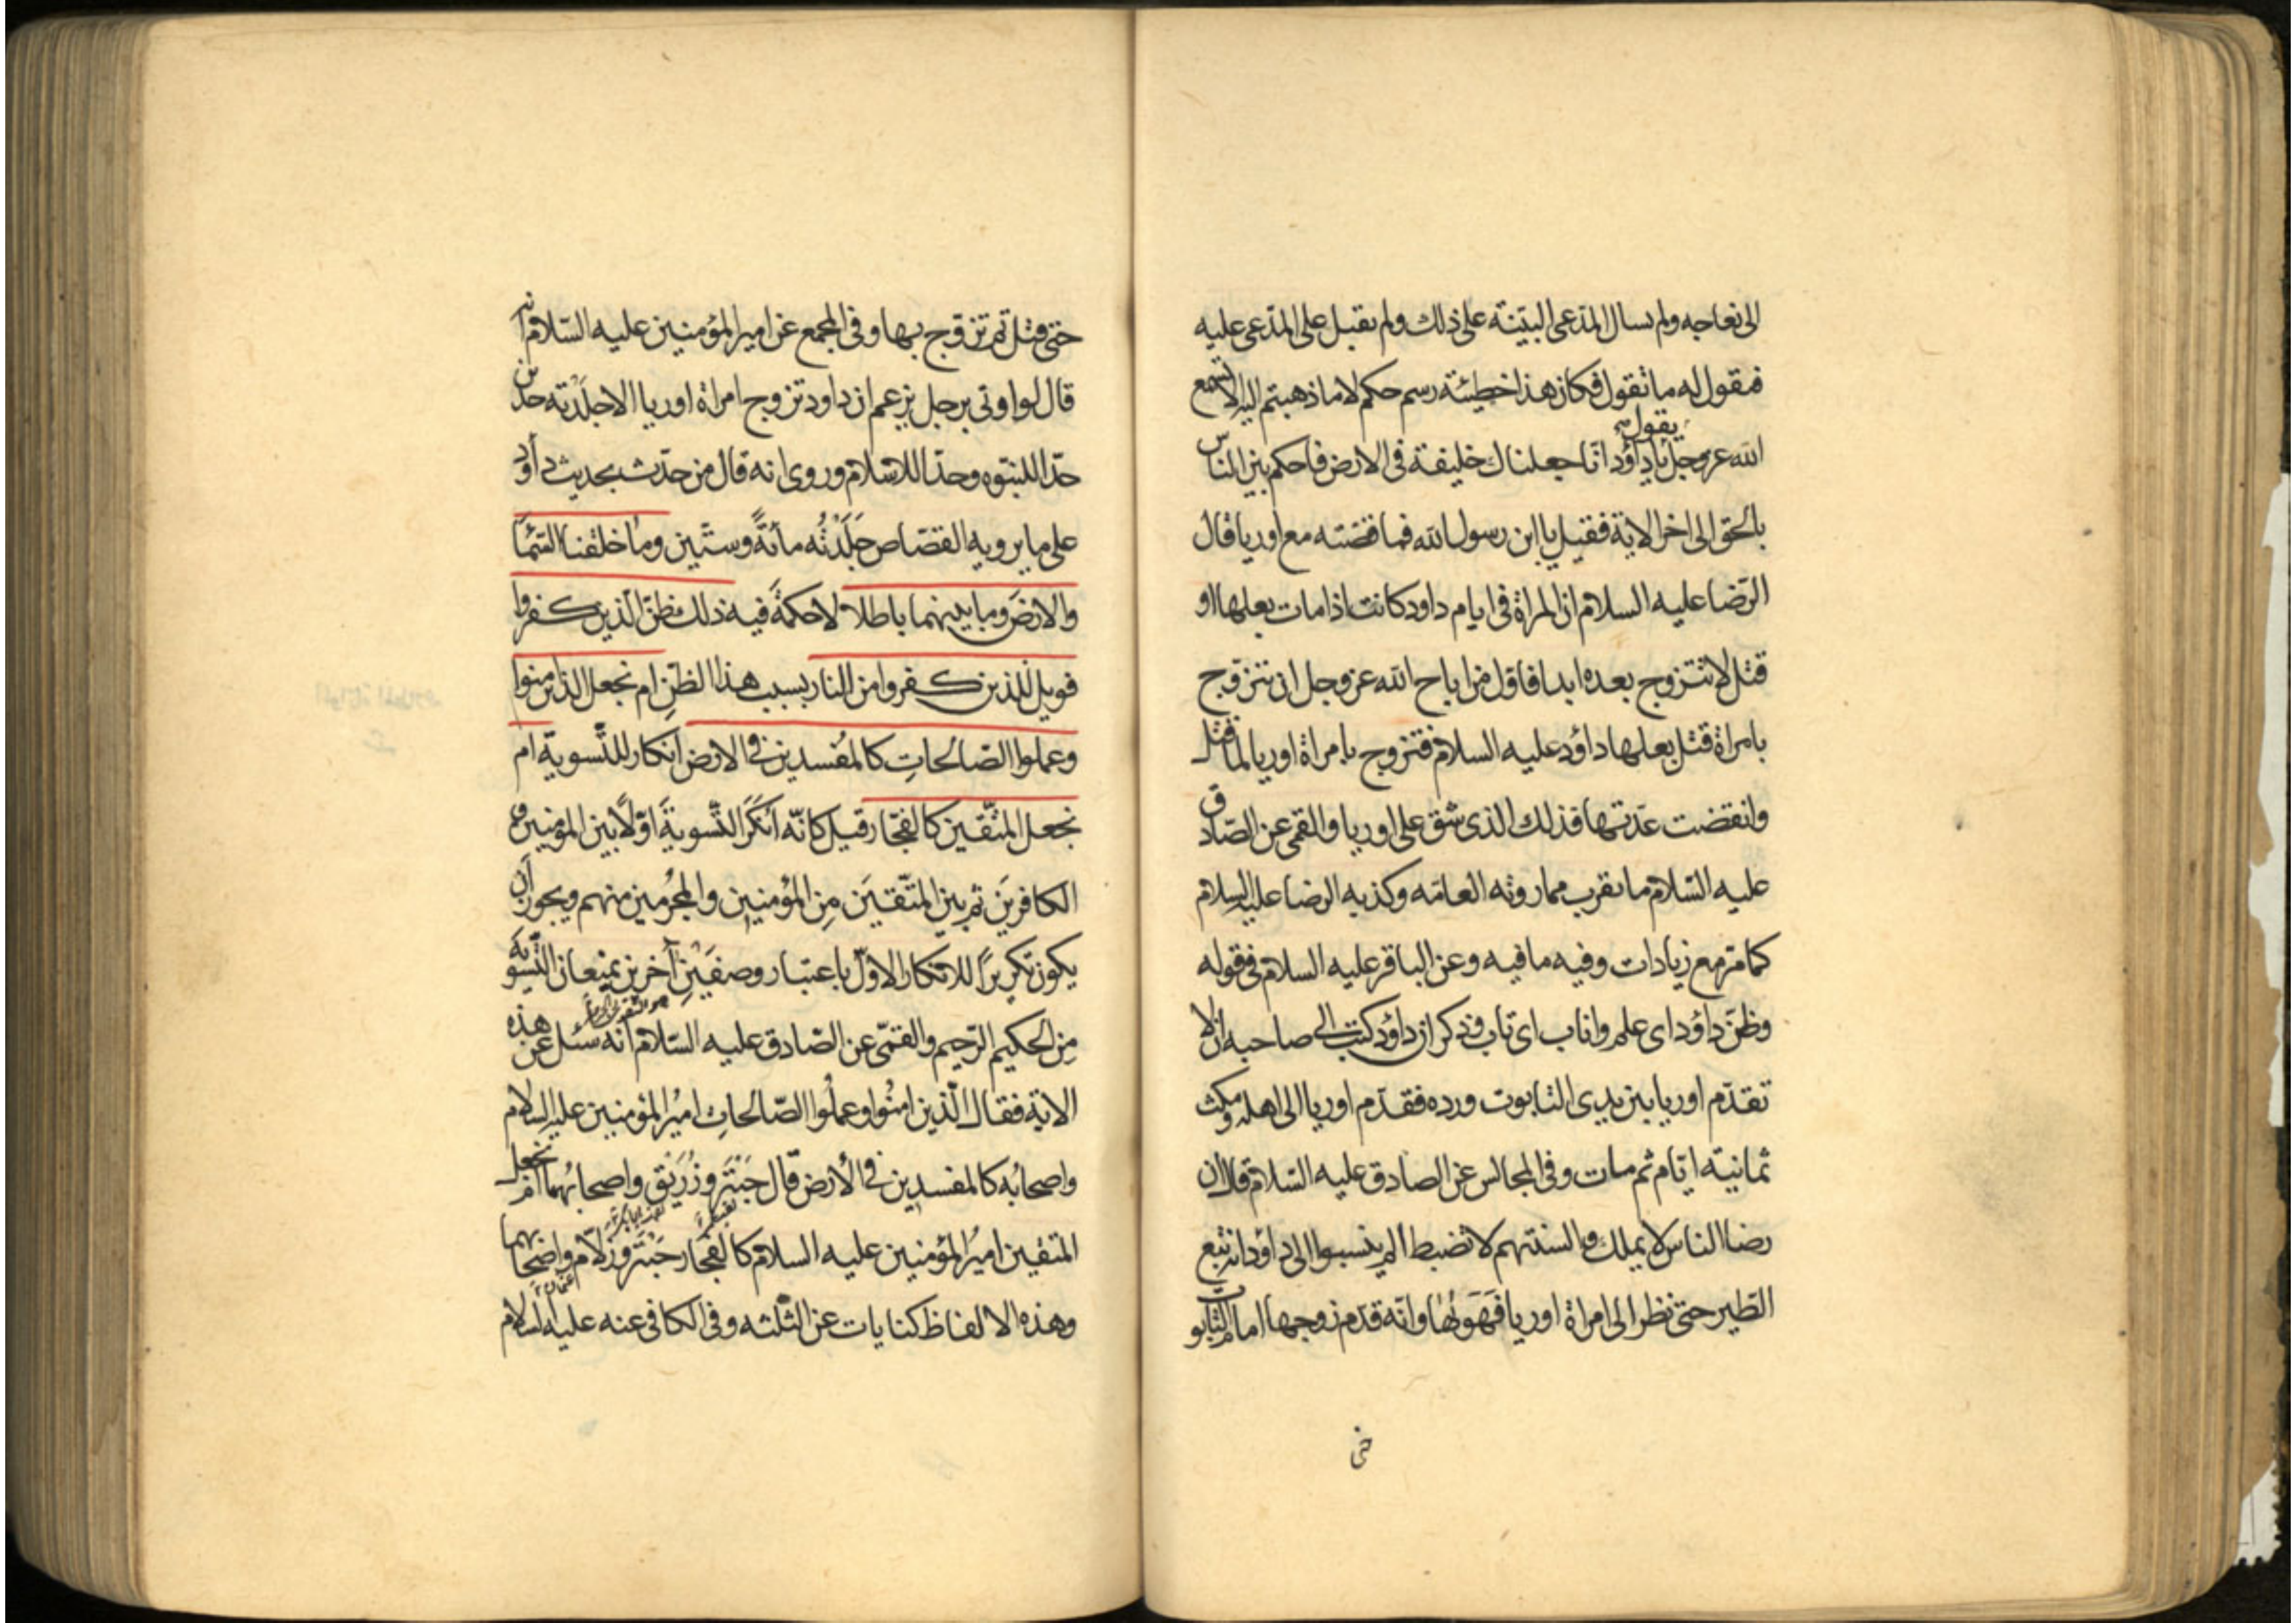 الى نعاجه ولم يسال المدّعى البيّنة على ذلك ولم يقبل على المدّعى عليه
فيقول له ما تقول فكان هذا خطيئة رسم حكم لا ما ذهبتم اليه الا تسمع
يقول
الله عز وجل يا داؤد انّا جعلناك خليفة فى الارض فاحكم بين الناس
بالحق الى اخر الاية فقيل يا ابن رسول الله فما قصّته مع اوريا فقال
الرّضا عليه السلام ان المراة فى ايام داود كانت اذا مات بعلها او
قتل لا تتزوج بعده ابدا فاوّل من اباح الله عز وجل ان يتزوّج
بامراة قتل بعلها داؤد عليه السلام فتزوج بامراة اوريا لما قتل
وانقضت عدّتها فذلك الذى شق على اوريا والقمى عن الصّادق
عليه السّلام ما يقرب مما روته العامّه وكذبه الرضا عليه السلام
كما مرّ مع زيادات وفيه ما فيه وعن الباقر عليه السلام فى قوله
وظنّ داؤد اى علم واناب اى تاب وذكر ان داؤد كتب الى صاحبه ان لا
تقدّم اوريا بين يدى التابوت ورده فقدّم اوريا الى اهله ومكث
ثمانية ايّام ثم مات وفى المجالس عن الصادق عليه السّلام قال ان
رضا الناس لا يملك والسنتهم لا تضبط الم ينسبوا الى داؤد انه تبع
الطّير حتى نظر الى امراة اوريا فَهَوِيَهَا وانّه قدّم زوجها امام التّابوت
حتى
حتى قتل ثم تزوّج بها وفى المجمع عن امير المؤمنين عليه السّلام انه
قال لو اوتى برجل يزعم ان داود تزوج امراة اوريا الا جلَدْته حدّين
حدّا للنبّوه وحدّا للاسلام وروى انه قال من حدّث بحديث داؤد
على ما يرويه القصّاص جَلَدْتُه مأئةً وستّين وما خلقنا السّمآء
والارضَ وما بينهما باطلا لا حكمةَ فيه ذلك ظنّ الّذين كفروا
فويل للذين كفروا من النار بسبب هذا الظنِ ام نجعل الذين امنوا
وعملوا الصّالحاتِ كالمُفسدين فى الارض انكار للتّسوية ام
نجعل المتّقين كالفجّار قيل كانّه اَنكَرَ التّسويةَ اوّلًا بين المؤمنين و
الكافرينَ ثم بين المتّقينَ مِن المؤمنين والمجُرمين منهم ويجوز اَن
يكون تكريرًا للانكار الاوّل باعتبار وصفَيْنِ آخرين يمنعان التّسوية
مِن الحكيم الرّحيم والقمّى عن الصّادق عليه السّلام انه سئل عن هذه
الاية فقال الّذين امنُوا وعملُوا الصّالحاتِ اميرُ المؤمنين عليه السلام
واصحابُه كالمفسدين فى الأرض قال حَبْتَر وزُرَيْق واصحابُهما اَم نجعل
المتقين اميرُ المؤمنين عليه السلام كالفجّار حَبْتَر وزلام واصحابهما
وهذه الالفاظ كنايات عن الثّلثه وفى الكافى عنه عليه السلام